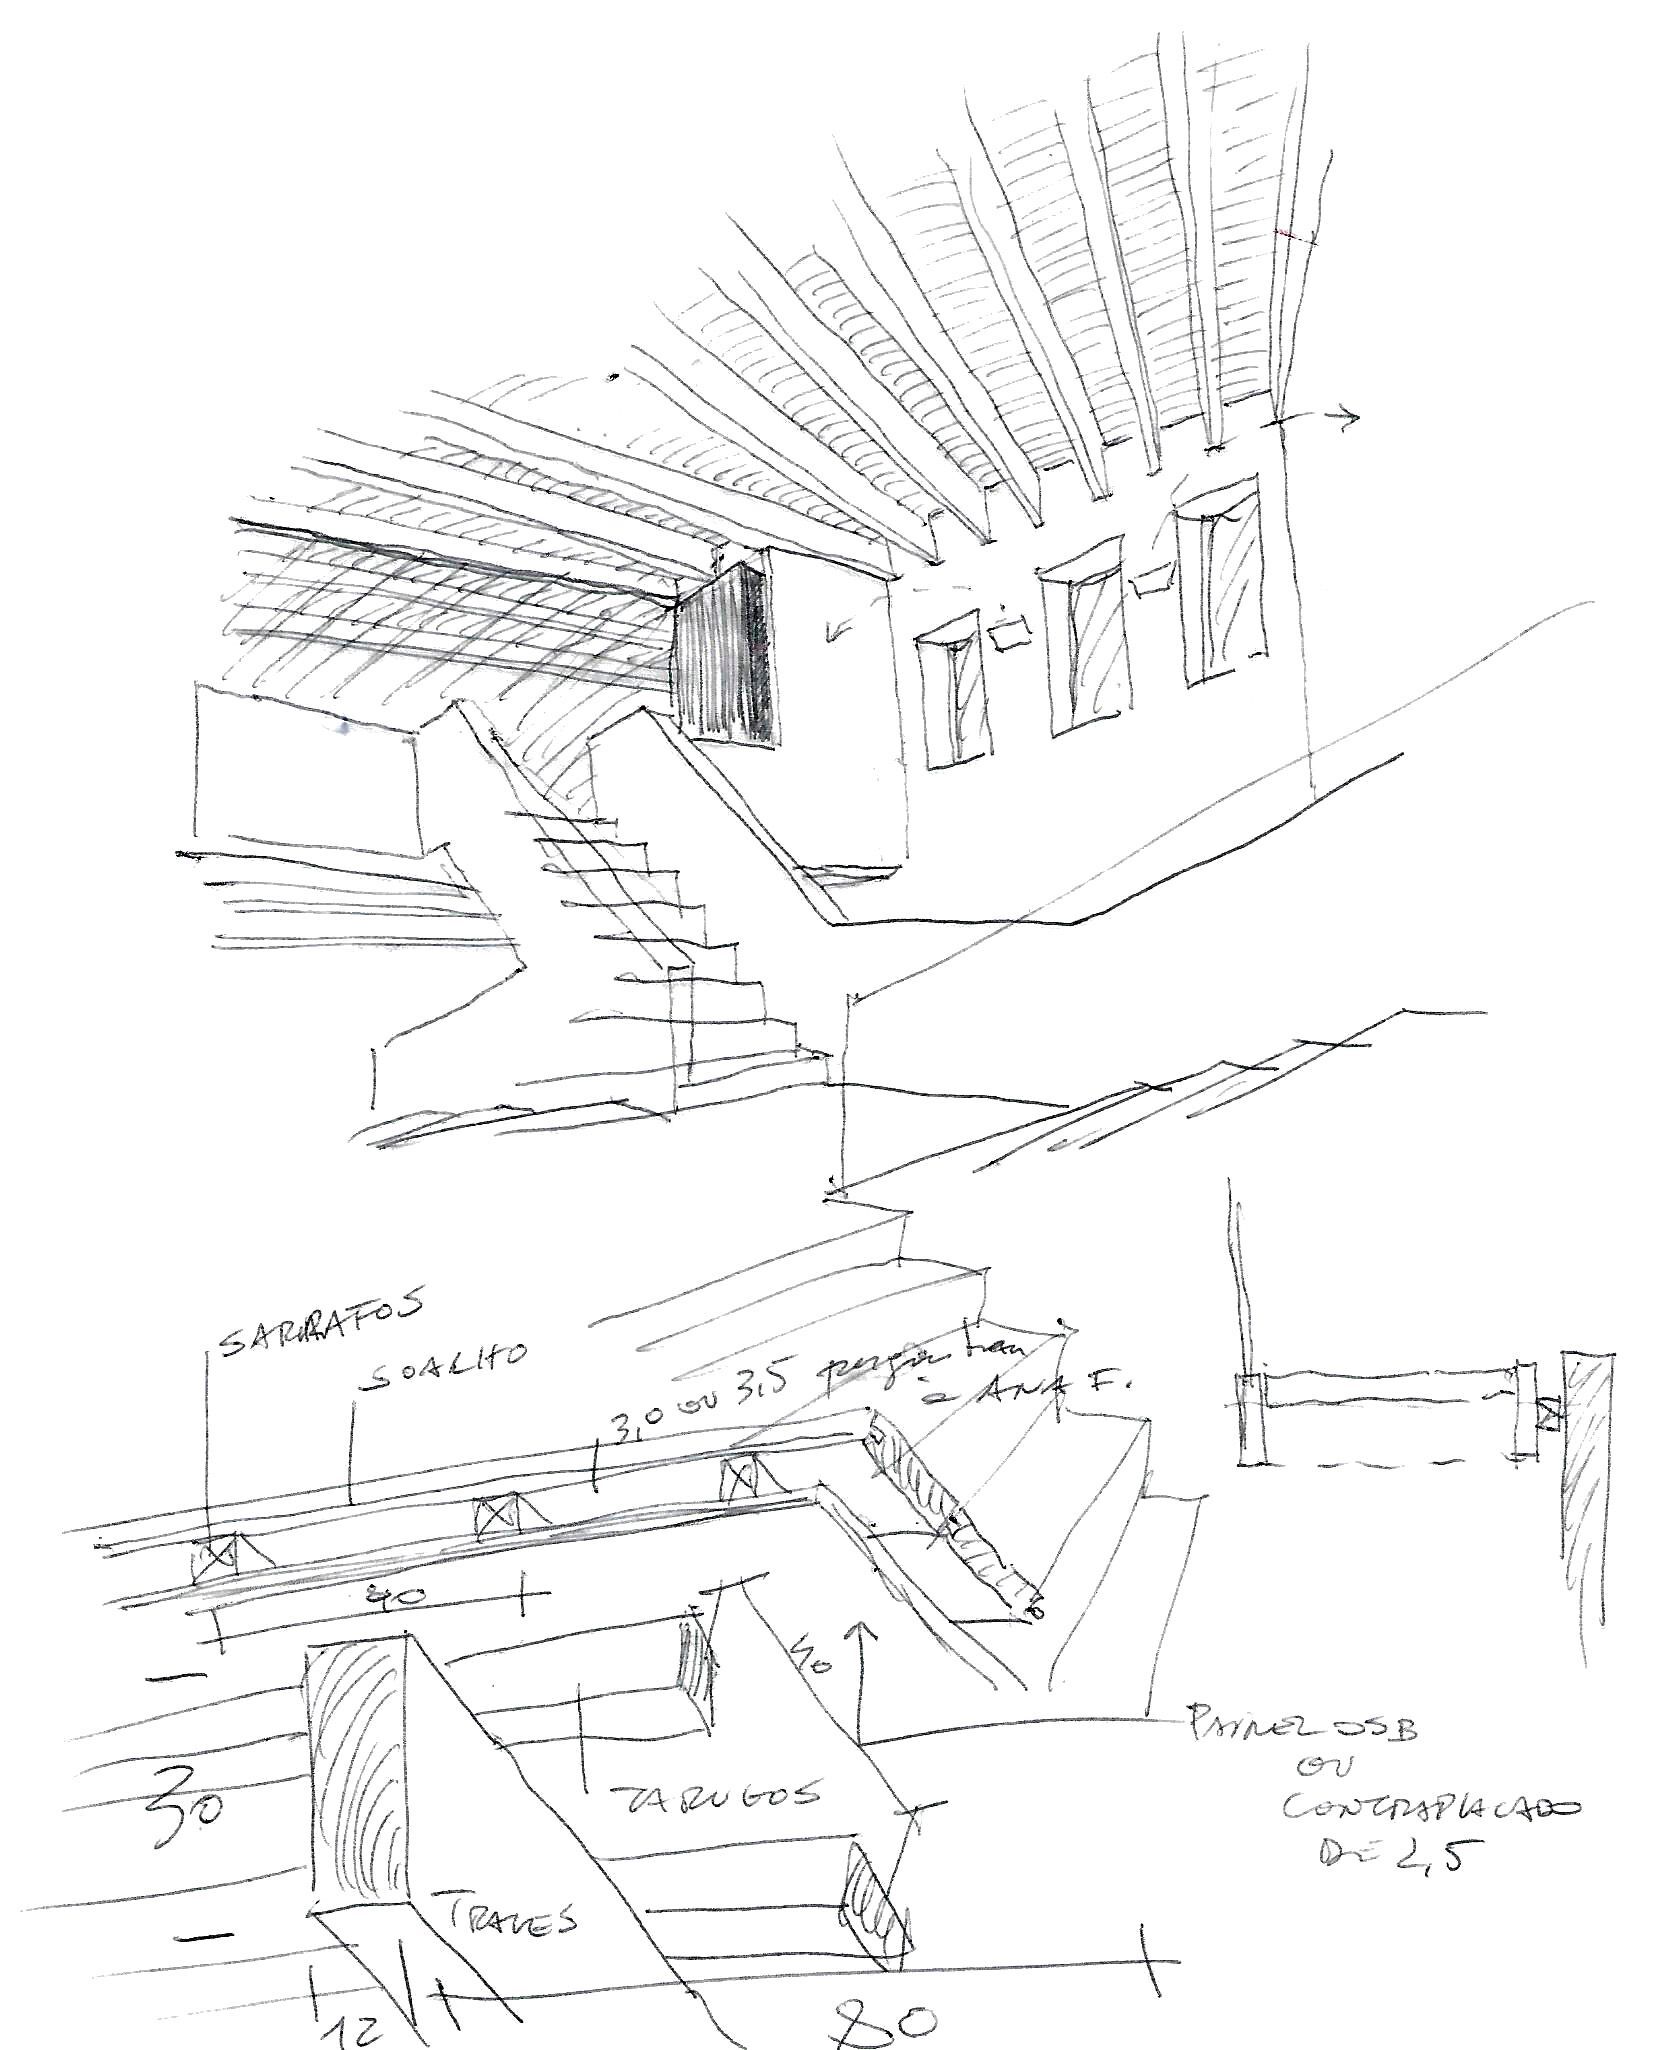 SARRAFOS
SOALHO
3,0 ou 3,5 perguntar
a ANA F.
40
40
PAINEL OSB
OU
CONTRAPLACADO
DE 2,5
TARUGOS
30
TRAVES
12
80